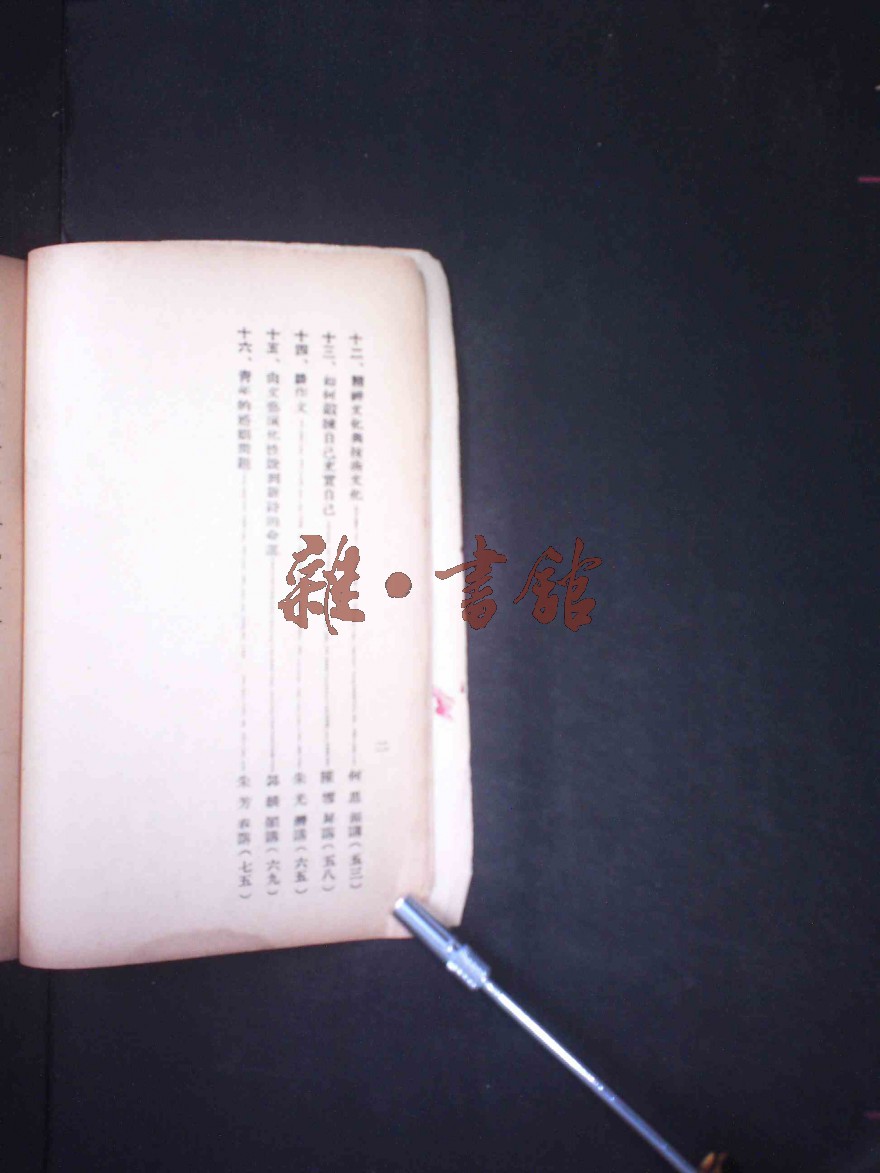 十二、精神文化與技術文化 何思源講(五三)
十三、如何鍛鍊自己充實自己 陳雪屏講(五八)
十四、談作文 朱光潛講(六五)
十五、由文藝演化性說到新詩的命運 郭麟閣講(六九)
十六、青年的婚姻問題 朱芳春講(七五)
二
雜·書館